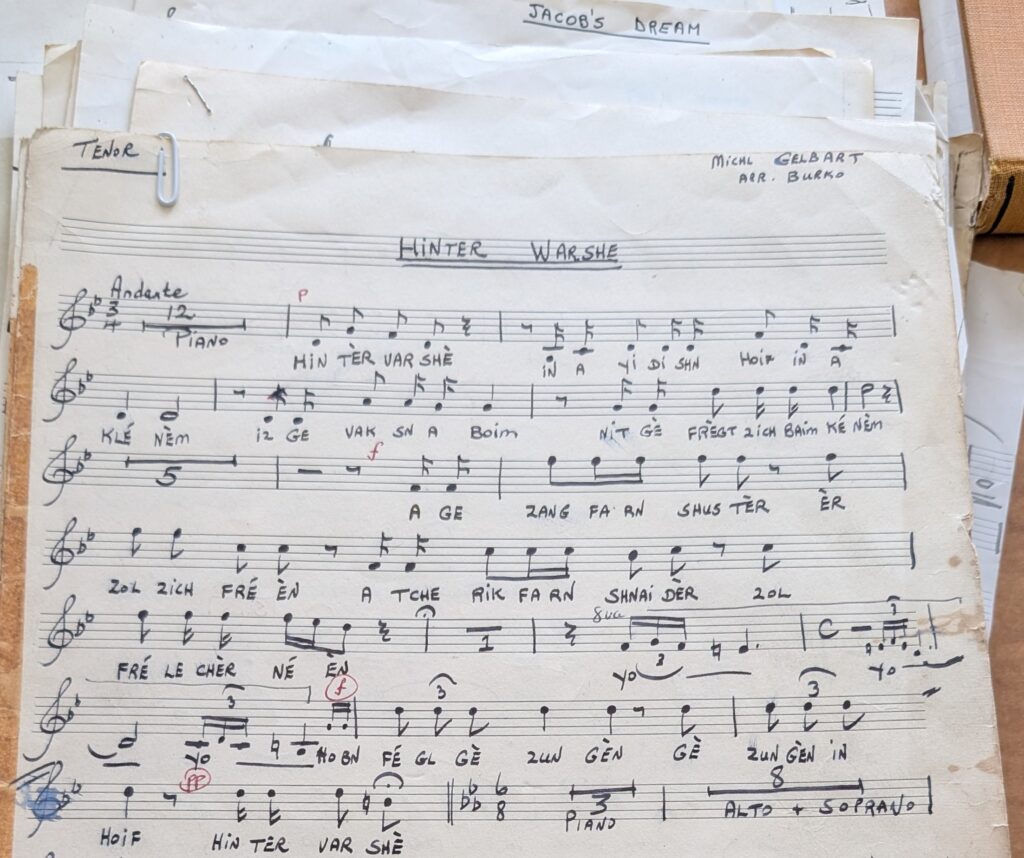 JACOB'S DREAM
TENOR
MICHL GELBART
ARR. BURKO
HINTER WARSHE
Andante
3 4 12
PIANO
P
HIN TÈR VAR SHÈ IN A YI DI SHN HOIF IN A
KLÉ NÈM IZ GE VAK SN A BOIM NIT GÈ FRÈGT ZICH BAIM KÉ NÈM
5 f
A GE ZANG FA RN SHUS TÈR ÈR
ZOL ZICH FRÉ ÈN A TCHE RIK FA RN SHNAI DÈR ZOL
1 8va 3 C 3
FRÉ LE CHÈR NÉ ÈN YO YO
3 f 3 3
YO HOBN FÉ GL GÈ ZUN GÈN GÈ ZUN GÈN IN
PP 6 8 3 8
PIANO ALTO + SOPRANO
HOIF HIN TÈR VAR SHÈ